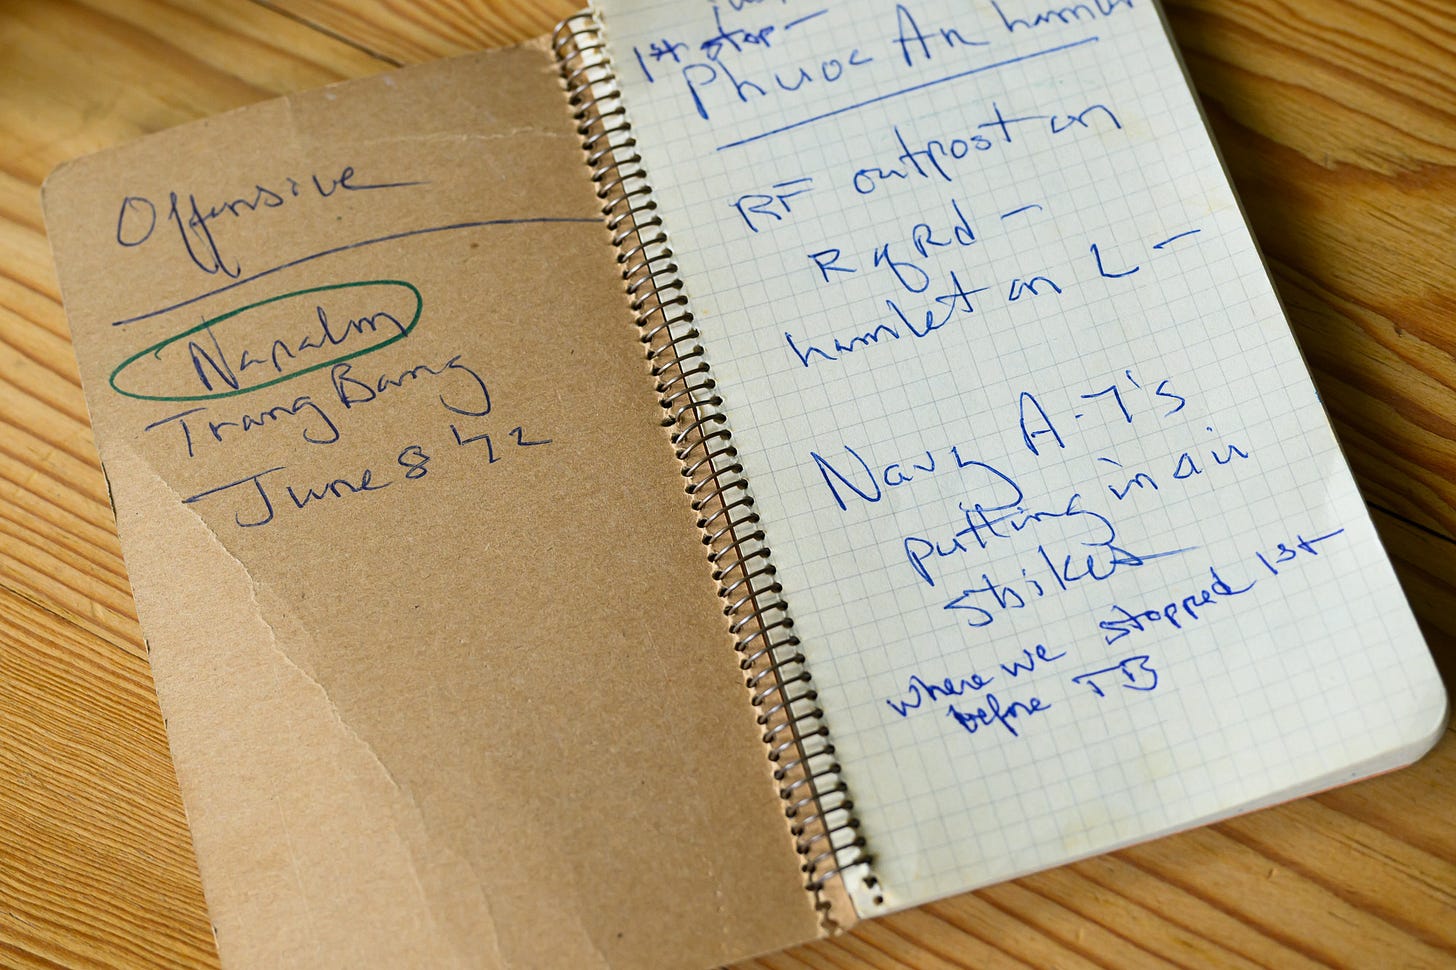 Offensive
Napalm
Trang Bang
June 8 '72
1st stop —
Phuoc An hamlet
RF outpost on
R of Rd —
hamlet on L —
Navy A-7's
putting in air
strikes
where we stopped 1st
before TB